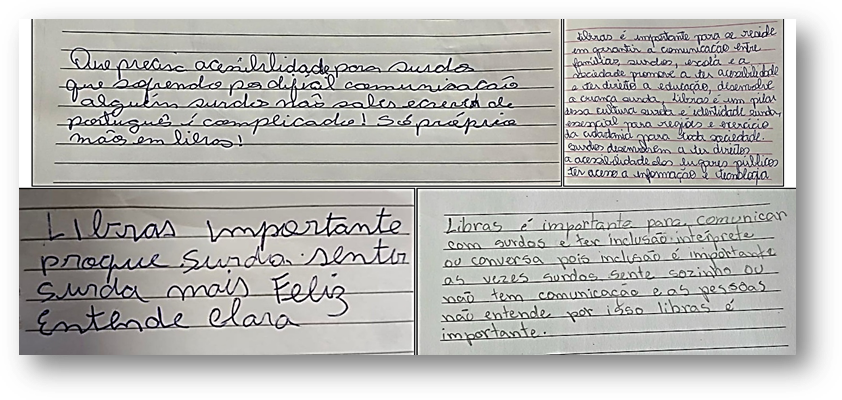 Que precisa acessibilidade para surdo
que sofrendo po difícil comunicação
alguém surdos não saber escreve de
português é complicado! Só própria
mãos em libras!
Libras é importante para se reside
em garantir a comunicação entre
famílias, surdos, escola e a
sociedade promove a ter acessibilidade
e ter direito a educação, desenvolve
a criança surda, Libras é um pilar
dessa cultura surda e identidade surda,
essencial para regiões e exercício
da cidadania para toda sociedade.
surdos desenvolvem a ter direitos
a acessibilidade dos lugares públicos
ter acesso a informação e tecnologia
Libras importante
proque surda sentir
surda mais Feliz
Entende clara
Libras é importante para comunicar
com surdos e ter inclusão intérprete
ou conversa pois inclusão é importante
as vezes surdos sente sozinho ou
não tem comunicação e as pessoas
não entende por isso libras é
importante.